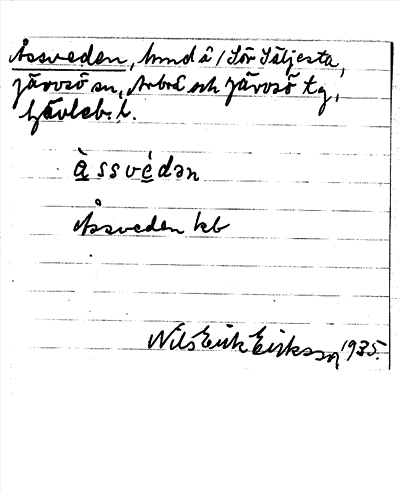 Åssveden, hmd å / Sör Säljesta,
Järvsö sn, Arbrå och Järvsö tg,
Gävleb. l.
à ssvédən
Åssveden kb
Nils Erik Eriksson 1935.